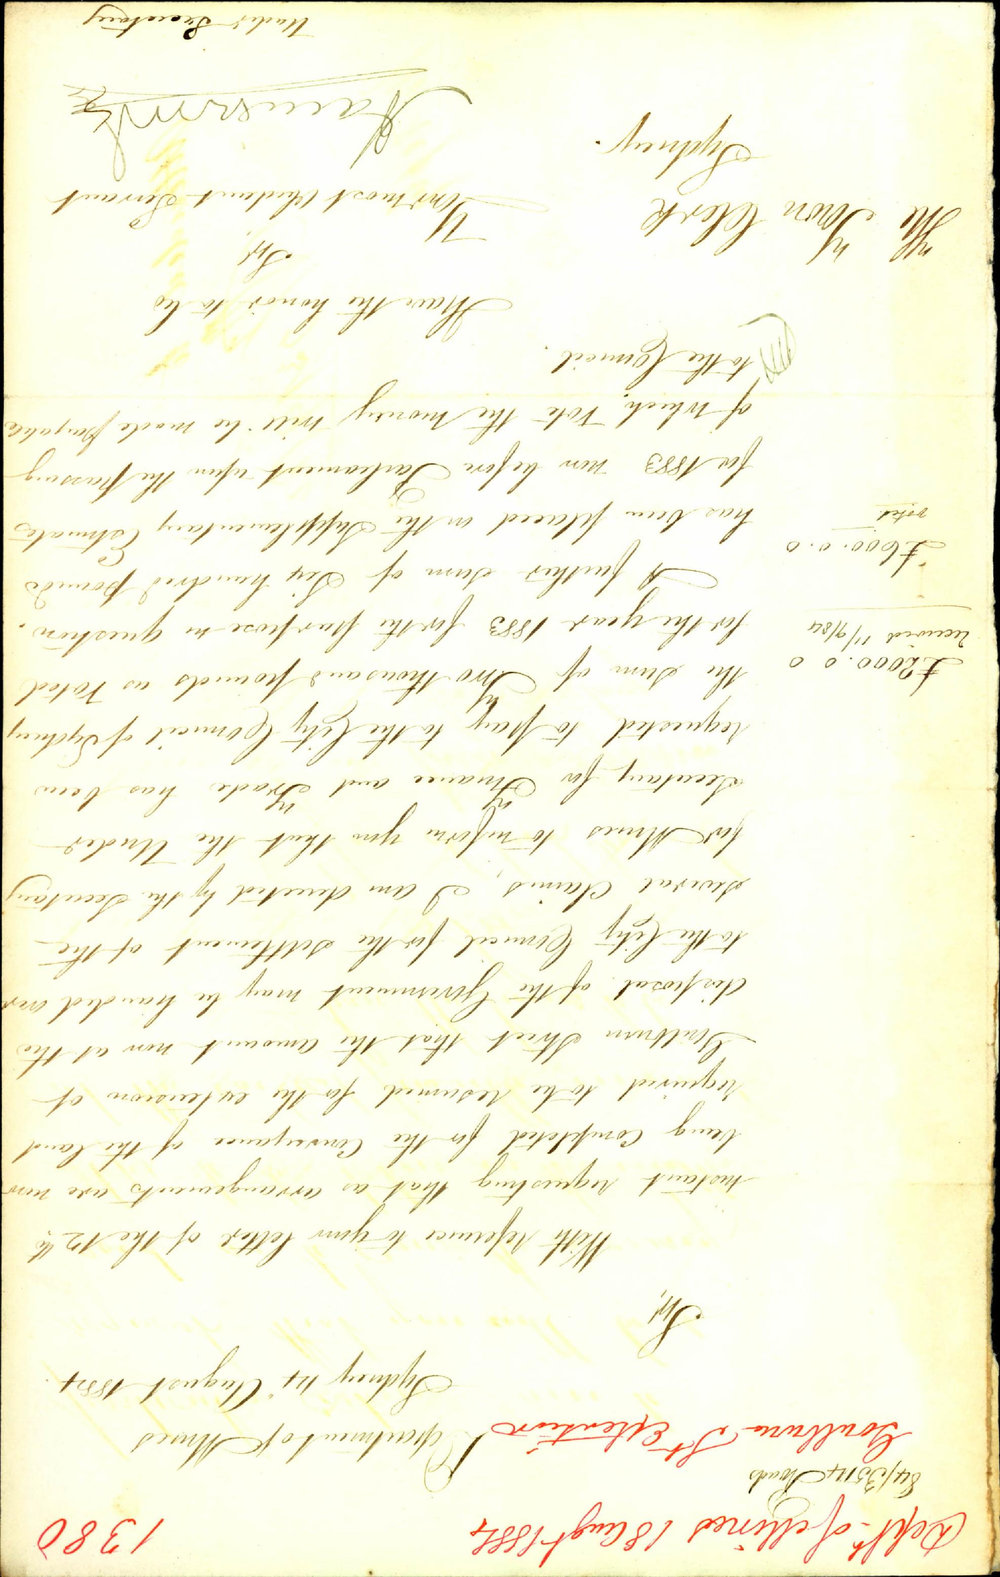 Dept. of Mines 18 Augt 1884
1380
84/3514 Roads
Goulburn St Extension
Department of Mines
Sydney 14 August 1884
Sir,
With reference to your letter of the 12th
instant requesting that as arrangements are now
being completed for the Conveyance of the land
required to be resumed for the extension of
Goulburn Street that the amount now at the
disposal of the Government may be handed over
to the City Council for the settlement of the
several claims, I am directed by the Secretary
for Mines to inform you that the Under
Secretary for Finance and Trade has been
requested to pay to the City Council of Sydney
the sum of Two thousand pounds as Voted
for the year 1883 for the purpose in question.
£2000.0.0
received 11/9/84
A further sum of Six hundred pounds
has been placed on the Supplementary Estimates
for 1883 now before Parliament upon the passing
of which Vote the money will be made payable
to the Council.
£600.0.0
voted
I have the honor to be
Sir
Your most Obedient Servant
The Town Clerk
Sydney.
Under Secretary